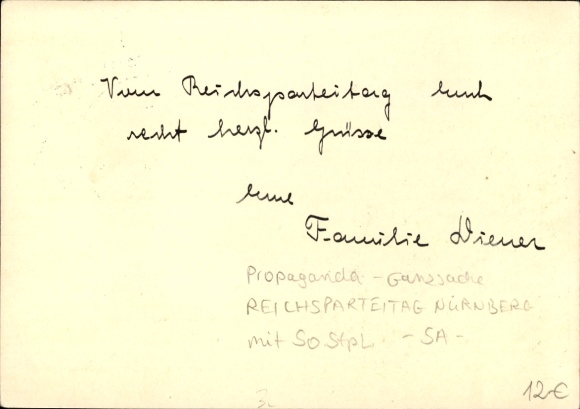 Vom Reichsparteitag Euch
recht herzl. Grüsse
Eure
Familie Wiener
Propaganda - Ganzsache
REICHSPARTEITAG NÜRNBERG
mit SOStpl - SA -
12€